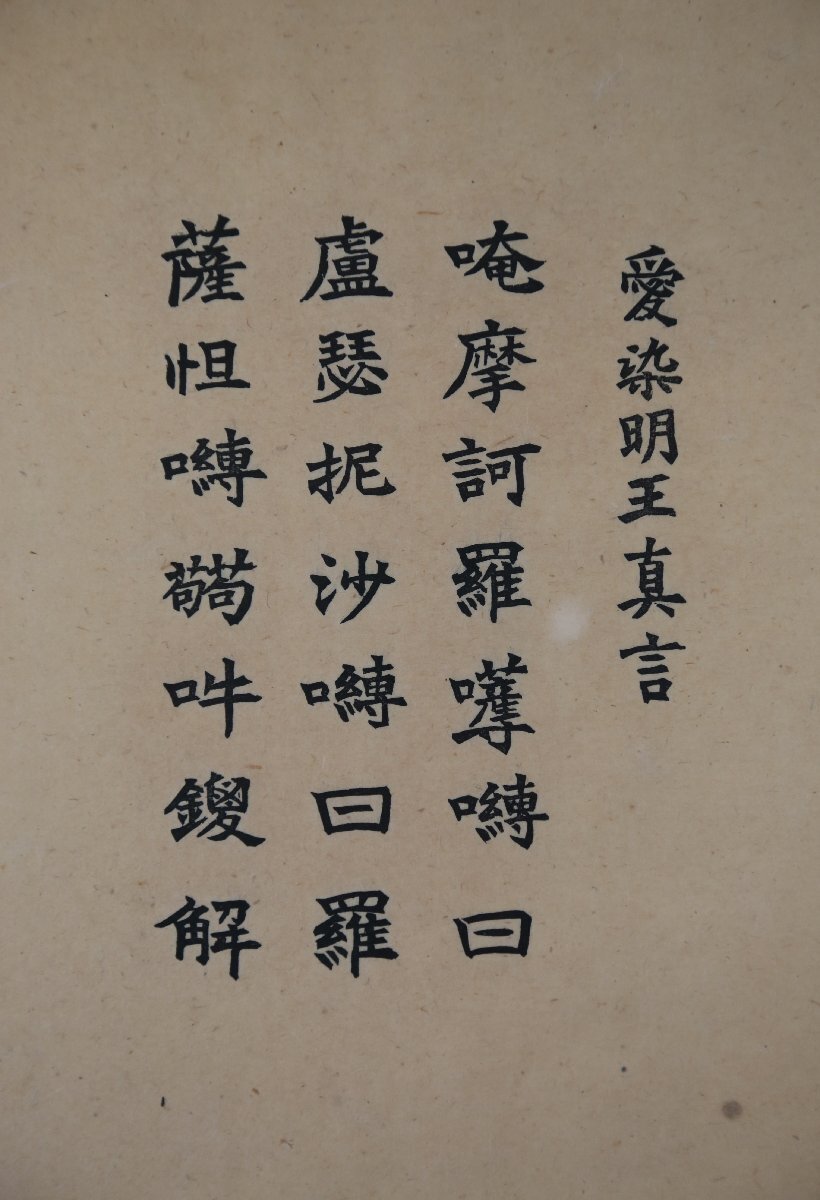 愛染明王真言
唵摩訶羅嚩曰
盧瑟抳沙嚩曰羅
薩怛嚩吽鑁解